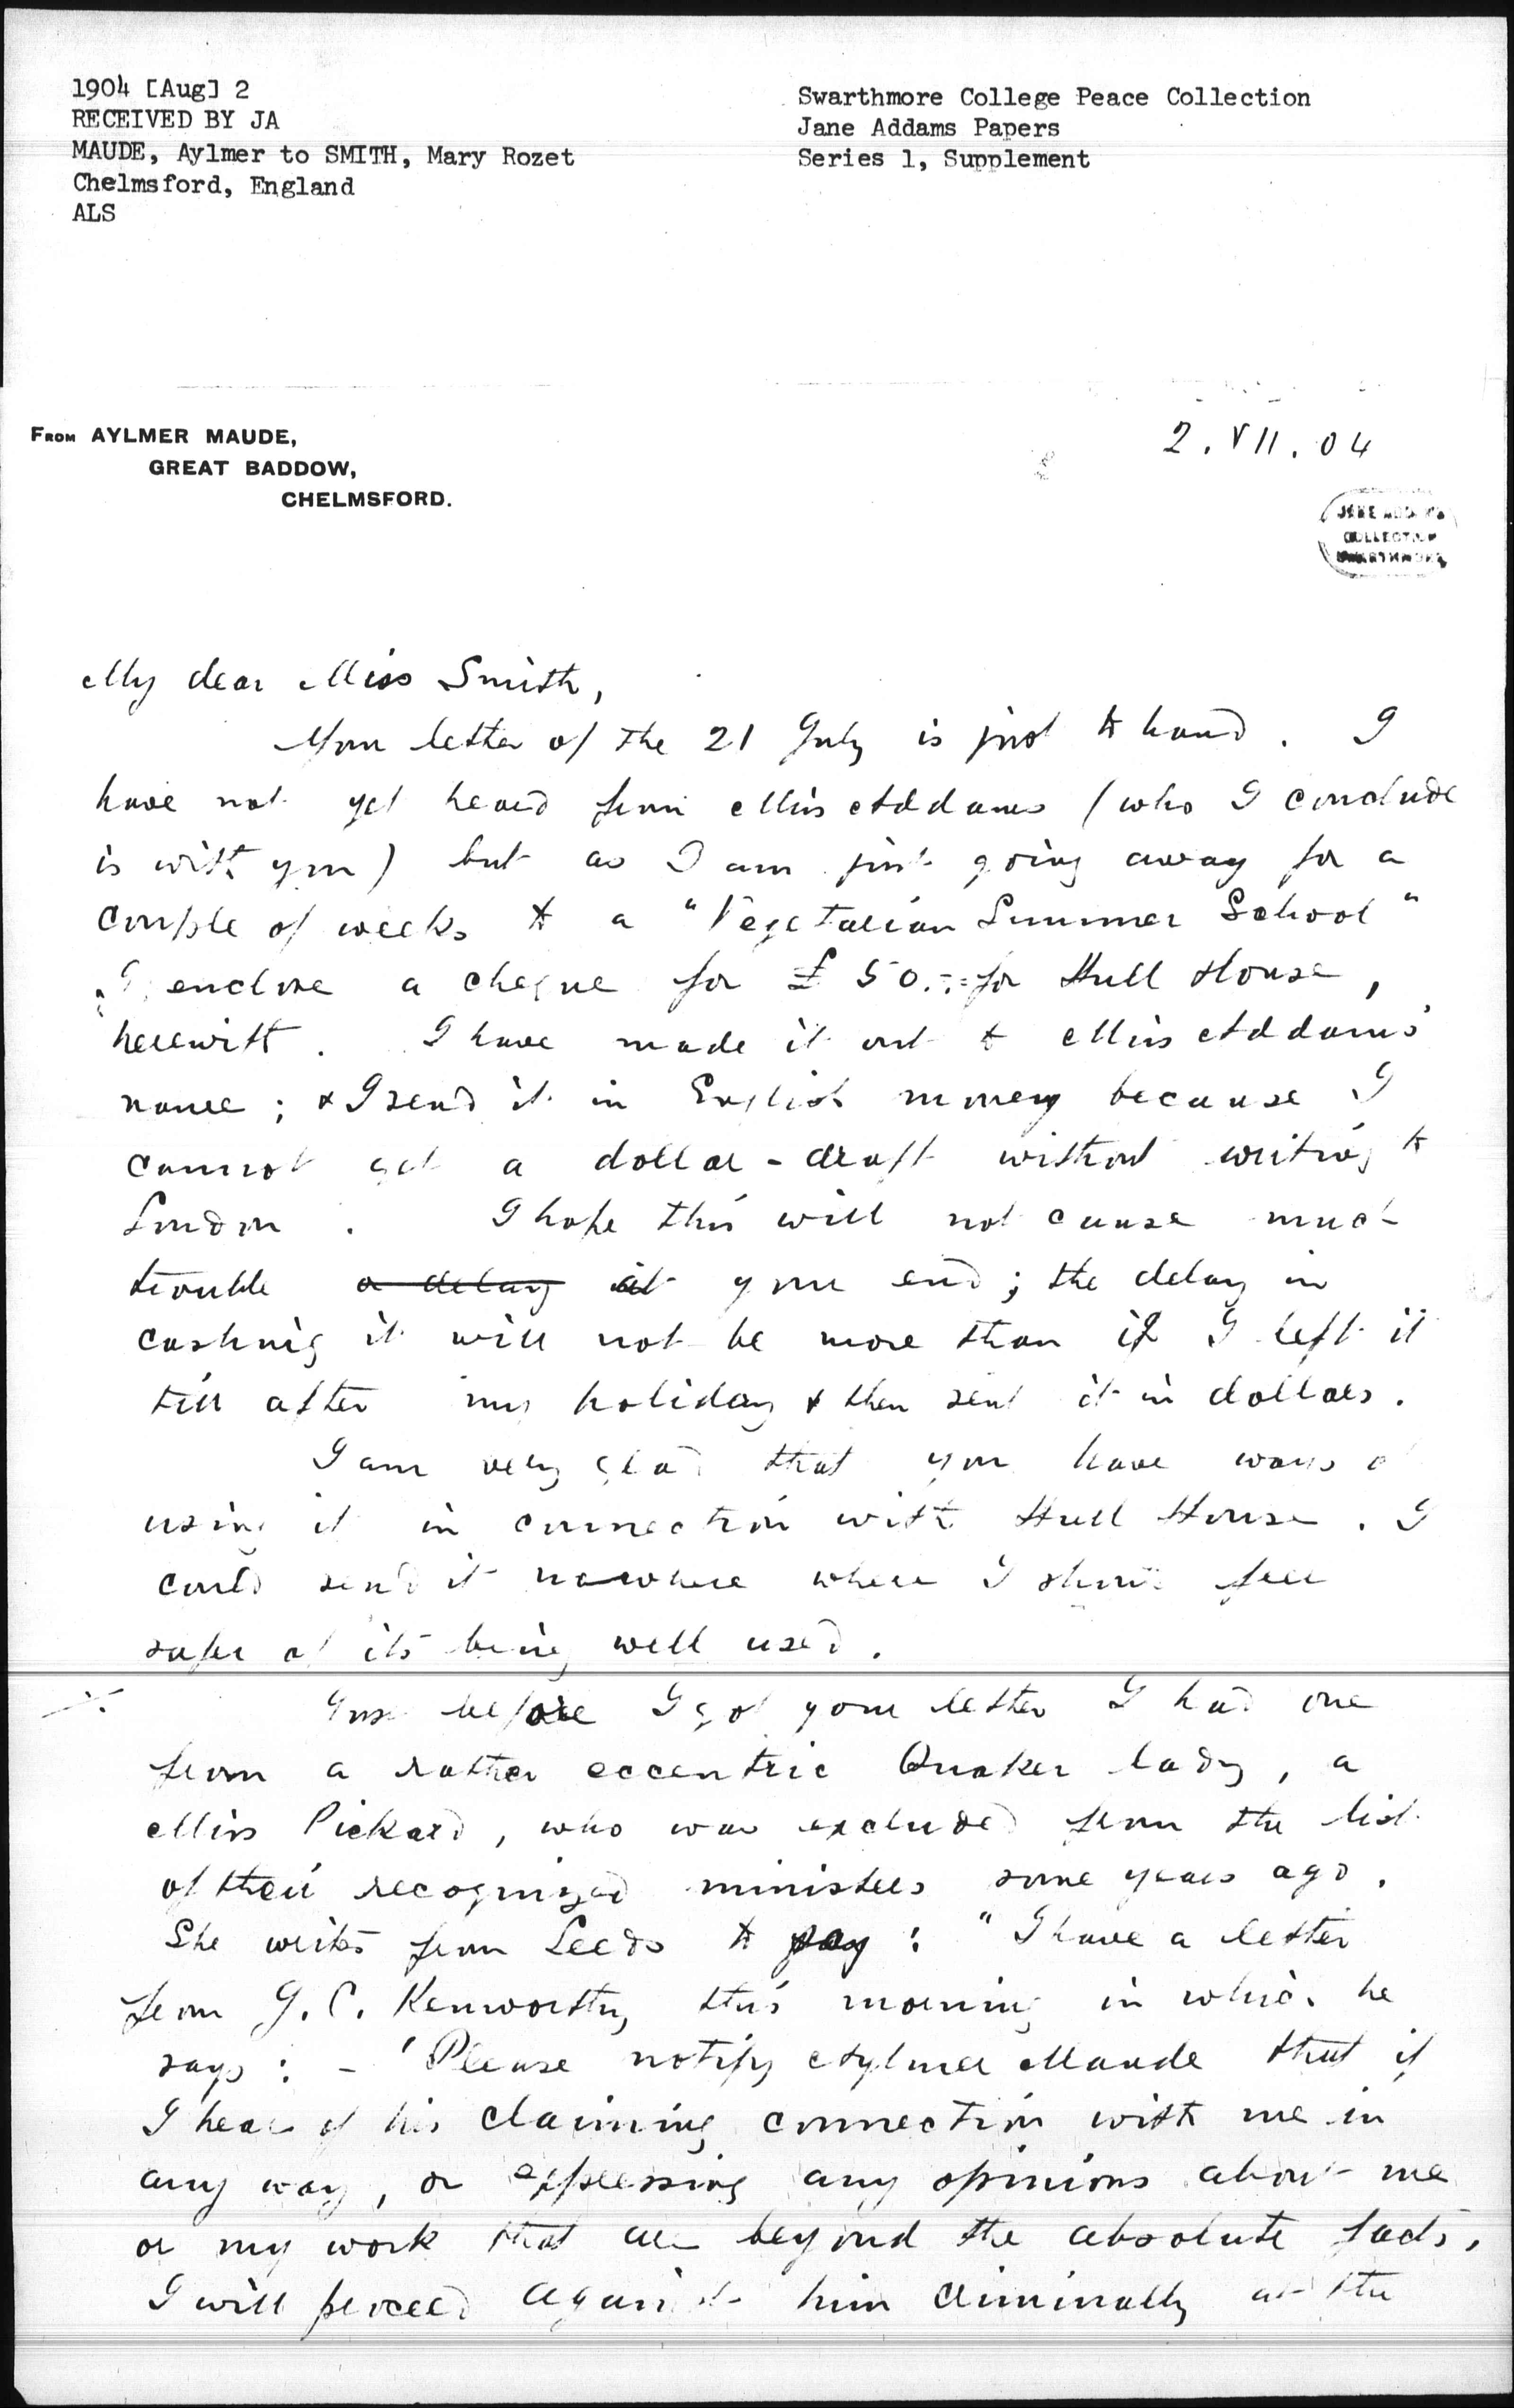 1904 [Aug] 2
RECEIVED BY JA
MAUDE, Aylmer to SMITH, Mary Rozet
Chelmsford, England
ALS
Swarthmore College Peace Collection
Jane Addams Papers
Series 1, Supplement
FROM AYLMER MAUDE,
GREAT BADDOW,
CHELMSFORD.
2. VII. 04
JANE ADDAMS
COLLECTION
SWARTHMORE
My dear Miss Smith,
Your letter of the 21 July is just to hand. I
have not yet heard from Miss Addams (who I conclude
is with you) but as I am just going away for a
couple of weeks to a "Vegetarian Summer School"
I enclose a cheque for £50.-:- for Hull House,
herewith. I have made it out to Miss Addams'
name; & I send it in English money because I
cannot get a dollar-draft without writing to
London. I hope this will not cause much
trouble or delay at your end; the delay in
cashing it will not be more than if I left it
till after my holiday & then sent it in dollars.
I am very glad that you have ways of
using it in connection with Hull House. I
could send it nowhere where I should feel
safer of its being well used.
Just before I got your letter I had one
from a rather eccentric Quaker lady, a
Miss Pickard, who was excluded from the list
of their recognized ministers some years ago.
She writes from Leeds to say: "I have a letter
from J. C. Kenworthy this morning in which he
says: - 'Please notify Aylmer Maude that if
I hear of his claiming connection with me in
any way, or expressing any opinions about me
or my work that are beyond the absolute facts,
I will proceed against him criminally at the